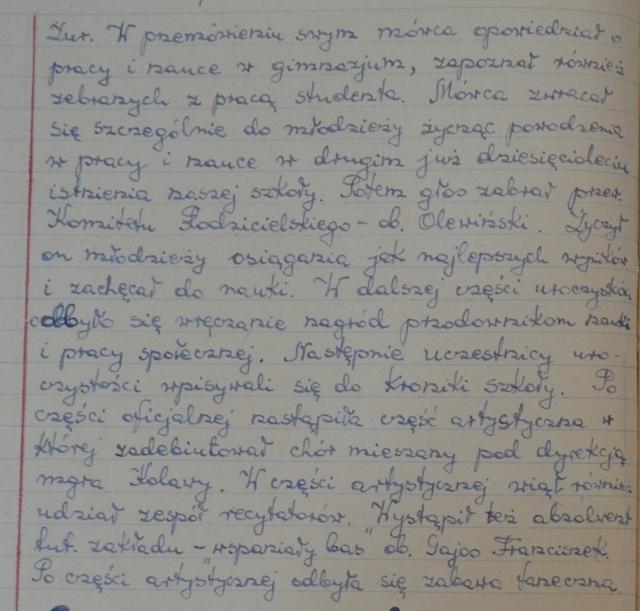 Żur. W przemówieniu swym mówca opowiedział o
pracy i nauce w gimnazjum, zapoznał również
zebranych z pracą studenta. Mówca zwracał
się szczególnie do młodzieży życząc powodzenia
w pracy i nauce w drugim już dziesięcioleciu
istnienia naszej szkoły. Potem głos zabrał przew.
Komitetu Rodzicielskiego - ob. Olewiński. Życzył
on młodzieży osiągania jak najlepszych wyników
i zachęcał do nauki. W dalszej części uroczystości
odbyło się wręczanie nagród przodownikom nauki
i pracy społecznej. Następnie uczestnicy uro-
czystości wpisywali się do kroniki szkoły. Po
części oficjalnej nastąpiła część artystyczna w
której zadebiutował chór mieszany pod dyrekcją
mgra Kolawy. W części artystycznej wziął również
udział zespół recytatorów. Wystąpił też absolwent
tut. zakładu - "wspaniały bas" ob. Gajos Franciszek.
Po części artystycznej odbyła się zabawa taneczna.